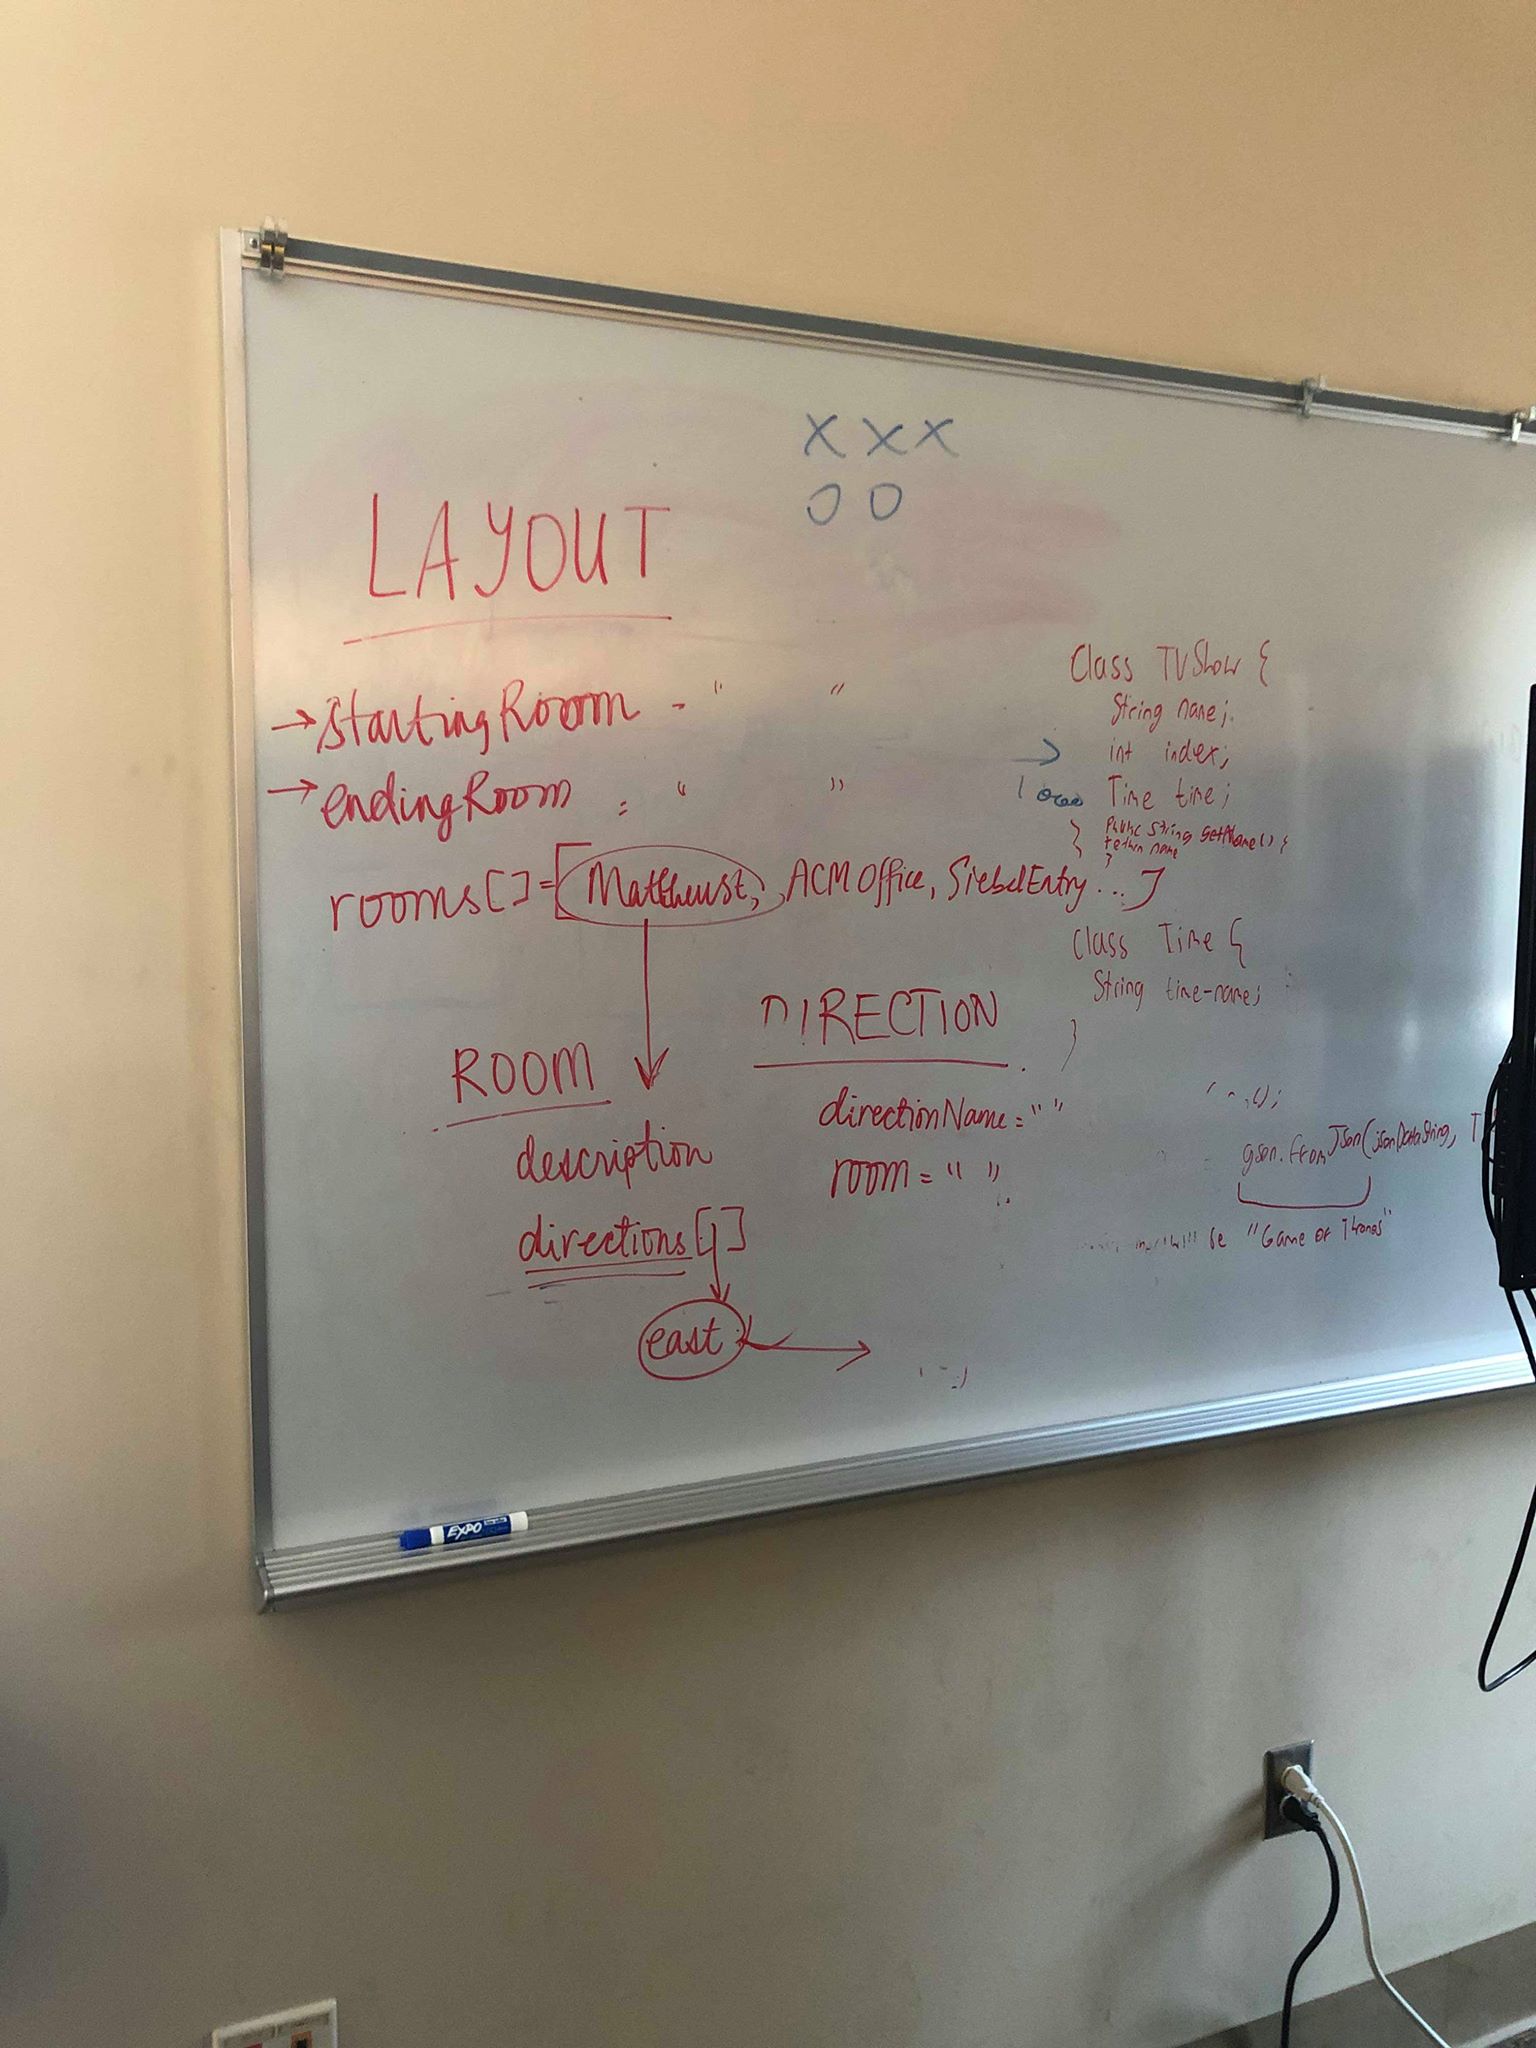 X X X
O O
LAYOUT
→ startingRoom = " "
→ endingRoom = " "
rooms[] = [MatthewsSt, ACMOffice, SiebelEntry ... ]
ROOM
description
directions[]
east
DIRECTION
directionName = " "
room = " "
Class TVShow {
String name;
→ int index;
Time time;
} Public String getName() {
return name
}
Class Time {
String time-name;
}
gson.fromJson(jsonDataString, T
be "Game of Thrones"
EXPO